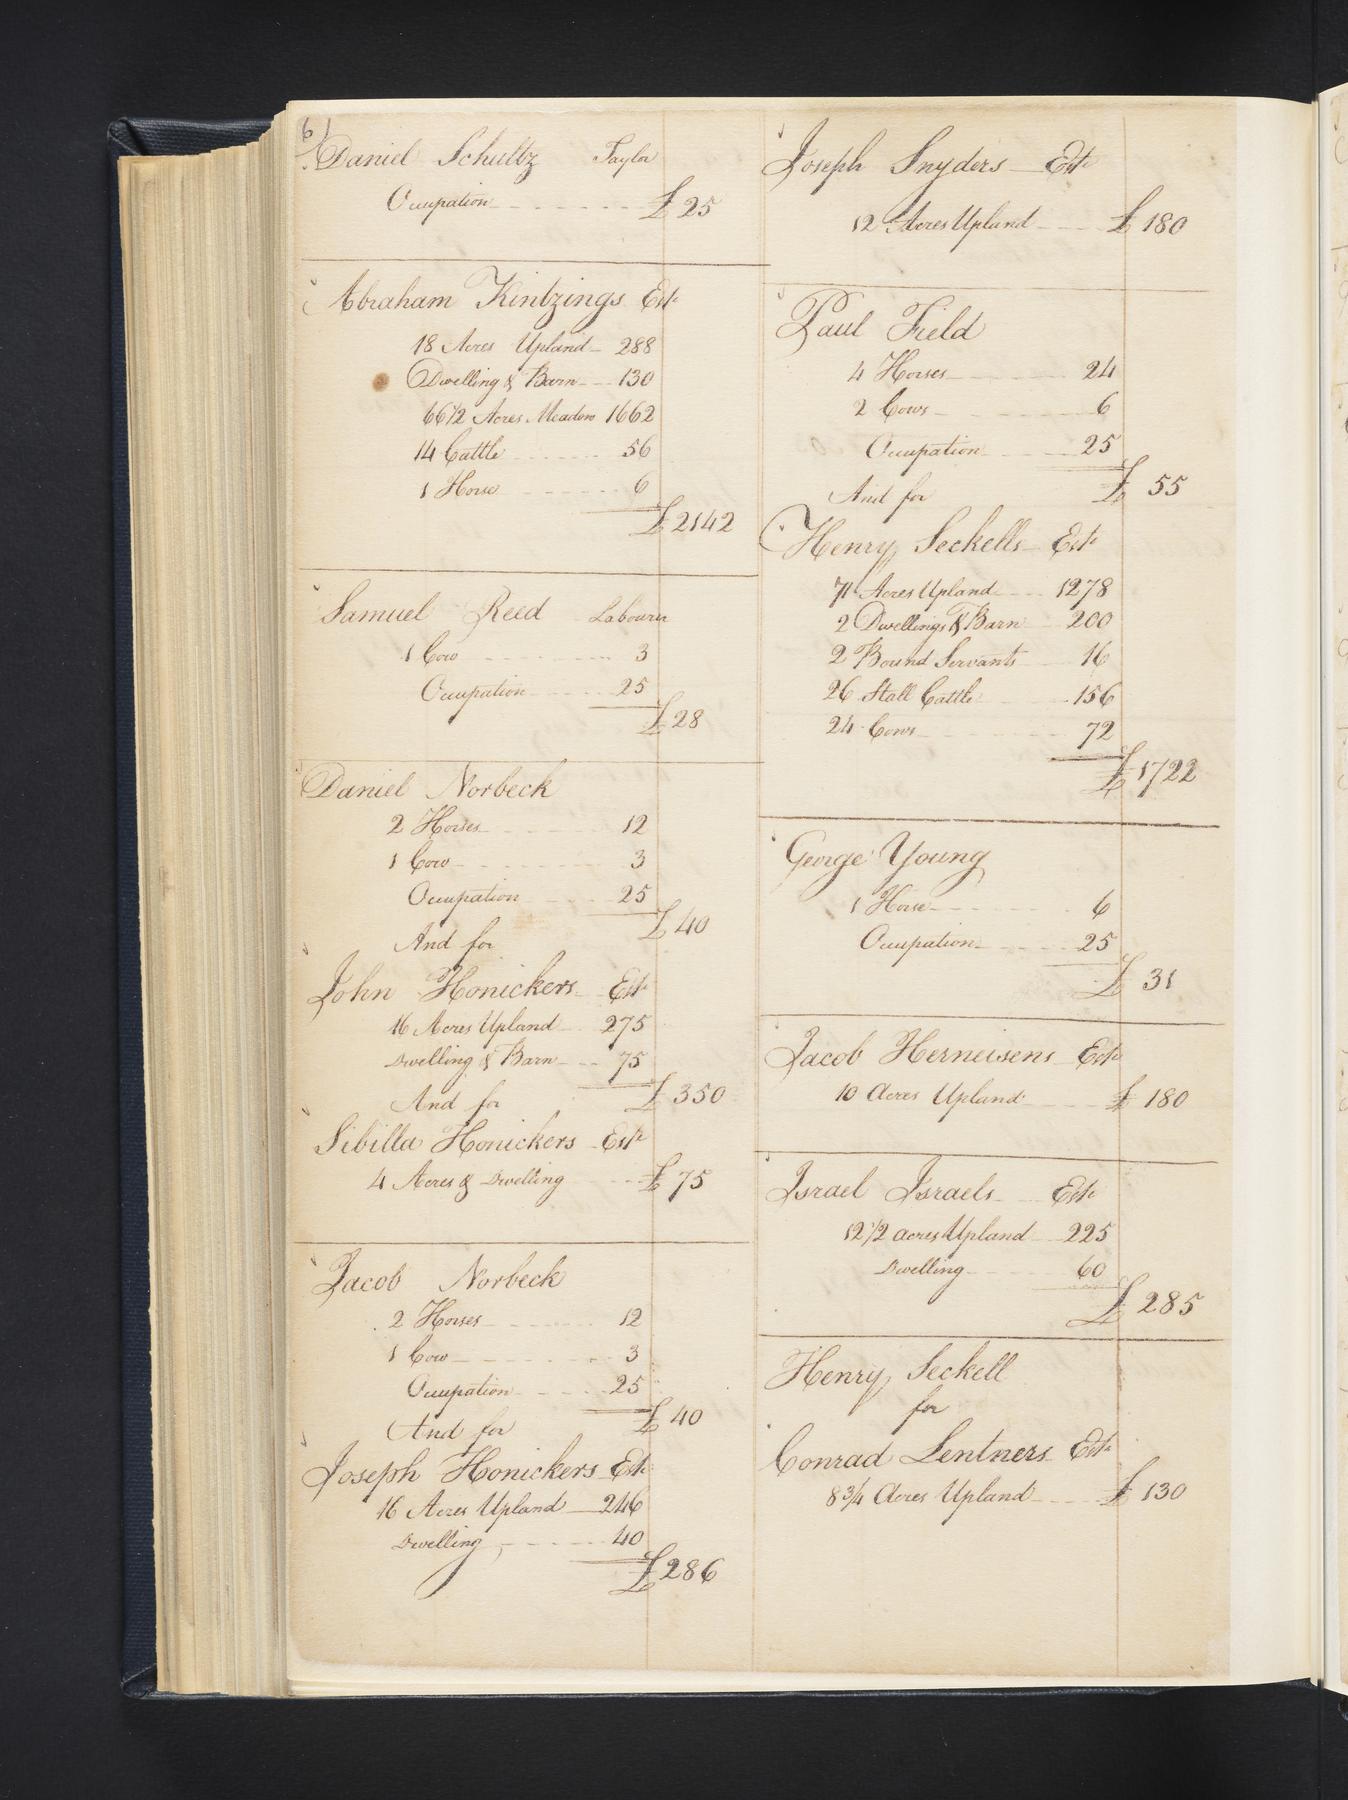 6)
Daniel Schultz Taylor
Ocupation £25
Abraham Kintzings Est.
18 Acres Upland 288
Dwelling & Barn 130
66 1/2 Acres Meadow 1662
14 Cattle 56
1 Horse 6
£2142
Samuel Reed Labourer
1 Cow 3
Ocupation 25
£28
Daniel Norbeck
2 Horses 12
1 Cow 3
Ocupation 25
£40
And for
John Honickers Est.
16 Acres Upland 275
Dwelling & Barn 75
£350
And for
Sibilla Honickers Est.
4 Acres & Dwelling £75
Jacob Norbeck
2 Horses 12
1 Cow 3
Ocupation 25
£40
And for
Joseph Honickers Est.
16 Acres Upland 246
Dwelling 40
£286
Joseph Snyders Est.
12 Acres Upland £180
Paul Field
4 Horses 24
2 Cows 6
Ocupation 25
£55
And for
Henry Seckells Est.
71 Acres Upland 1278
2 Dwellings & Barn 200
2 Bound Servants 16
26 Stall Cattle 156
24 Cows 72
£1722
George Young
1 Horse 6
Ocupation 25
£31
Jacob Herneisens Est.
10 Acres Upland £180
Israel Israels Est.
12 1/2 acres Upland 225
Dwelling 60
£285
Henry Seckell
for
Conrad Lentners Est.
8 3/4 Acres Upland £130